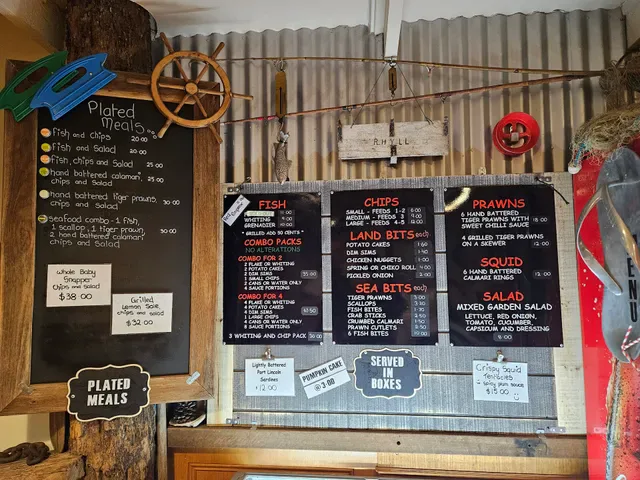 Plated
Meals
Fish and chips 20.00
Fish and Salad 20.00
Fish, chips and Salad 25.00
hand battered calamari, 25.00
chips and Salad
hand battered tiger prawns, 30.00
chips and Salad
Seafood combo - 1 fish,
1 scallop, 1 tiger prawn, 30.00
2 hand battered calamari
chips and Salad
Whole Baby
Snapper
Chips and salad
$38.00
Grilled
Lemon Sole,
chips and salad
$32.00
PLATED
MEALS
RHYLL
FISH
WHITING 9.00
GRENADIER 10.00
* GRILLED ADD 50 CENTS *
COMBO PACKS
NO ALTERATIONS
COMBO FOR 2
2 FLAKE OR WHITING
2 POTATO CAKES
2 DIM SIMS
2 SMALL CHIPS
2 CANS OR WATER ONLY
2 SAUCE PORTIONS
COMBO FOR 4
4 FLAKE OR WHITING
4 POTATO CAKES
4 DIM SIMS
2 LARGE CHIPS
4 CANS OR WATER ONLY
8 SAUCE PORTIONS
3 WHITING AND CHIP PACK
CHIPS
SMALL - FEEDS 1-2 6.00
MEDIUM - FEEDS 3 9.00
LARGE - FEEDS 4-5
LAND BITS each
POTATO CAKES
DIM SIMS
CHICKEN NUGGETS
SPRING OR CHIKO ROLL
PICKLED ONION
SEA BITS each
TIGER PRAWNS
SCALLOPS
FISH BITES
CRAB STICKS
CRUMBED CALAMARI
PRAWN CUTLETS
6 FISH BITES
PRAWNS
6 HAND BATTERED
TIGER PRAWNS WITH 18.00
SWEET CHILLI SAUCE
4 GRILLED TIGER PRAWNS
ON A SKEWER 12.00
SQUID
6 HAND BATTERED
CALAMARI RINGS 12.00
SALAD
MIXED GARDEN SALAD
LETTUCE, RED ONION,
TOMATO, CUCUMBER,
CAPSICUM AND DRESSING
9.00
Lightly Battered
Port Lincoln
Sardines
$12.00
PUMPKIN CAKE
@ 3.00
SERVED
IN
BOXES
Crispy Squid
Tentacles
+ spicy plum sauce
$15.00
MENU